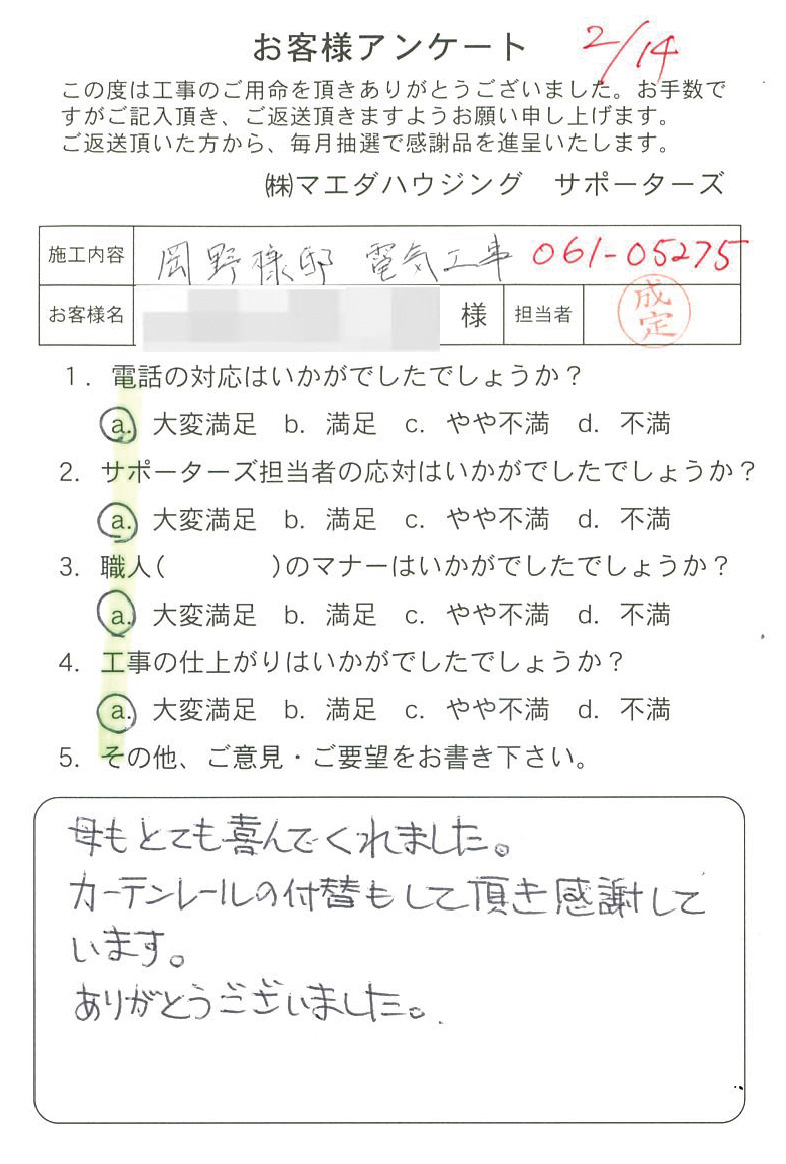 お客様アンケート 2/14
この度は工事のご用命を頂きありがとうございました。お手数で
すがご記入頂き、ご返送頂きますようお願い申し上げます。
ご返送頂いた方から、毎月抽選で感謝品を進呈いたします。
㈱マエダハウジング サポーターズ
施工内容 岡野様邸 電気工事 061-05275
お客様名 様 担当者 成定
1. 電話の対応はいかがでしたでしょうか？
a. 大変満足 b. 満足 c. やや不満 d. 不満
2. サポーターズ担当者の応対はいかがでしたでしょうか？
a. 大変満足 b. 満足 c. やや不満 d. 不満
3. 職人( )のマナーはいかがでしたでしょうか？
a. 大変満足 b. 満足 c. やや不満 d. 不満
4. 工事の仕上がりはいかがでしたでしょうか？
a. 大変満足 b. 満足 c. やや不満 d. 不満
5. その他、ご意見・ご要望をお書き下さい。
母もとても喜んでくれました。
カーテンレールの付替もして頂き感謝して
います。
ありがとうございました。